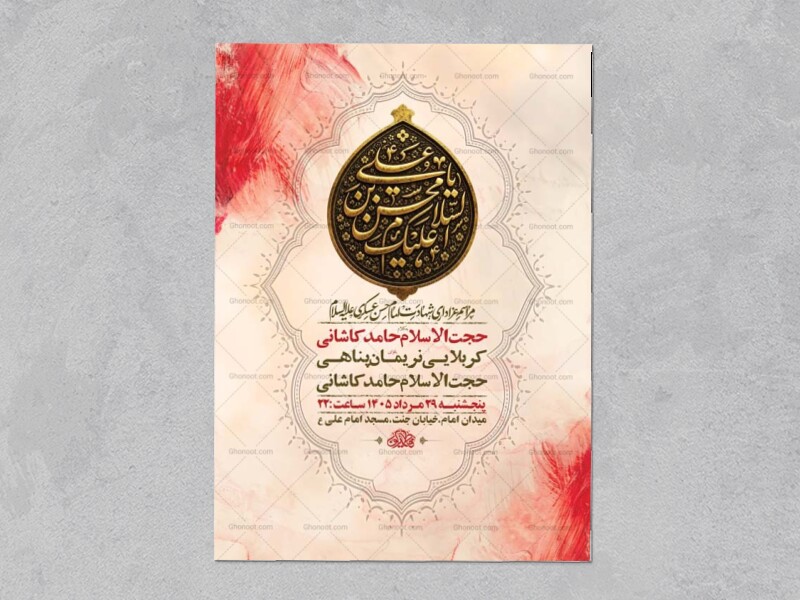 السلام علیک یا حسن بن علی
مراسم عزاداری شهادت امام حسن عسکری علیه السلام
حجت الاسلام حامد کاشانی
کربلایی نریمان پناهی
حجت الاسلام حامد کاشانی
پنجشنبه ۲۹ مرداد ۱۴۰۵ ساعت: ۲۲
میدان امام، خیابان جنت، مسجد امام علی ع
Ghonoot.com